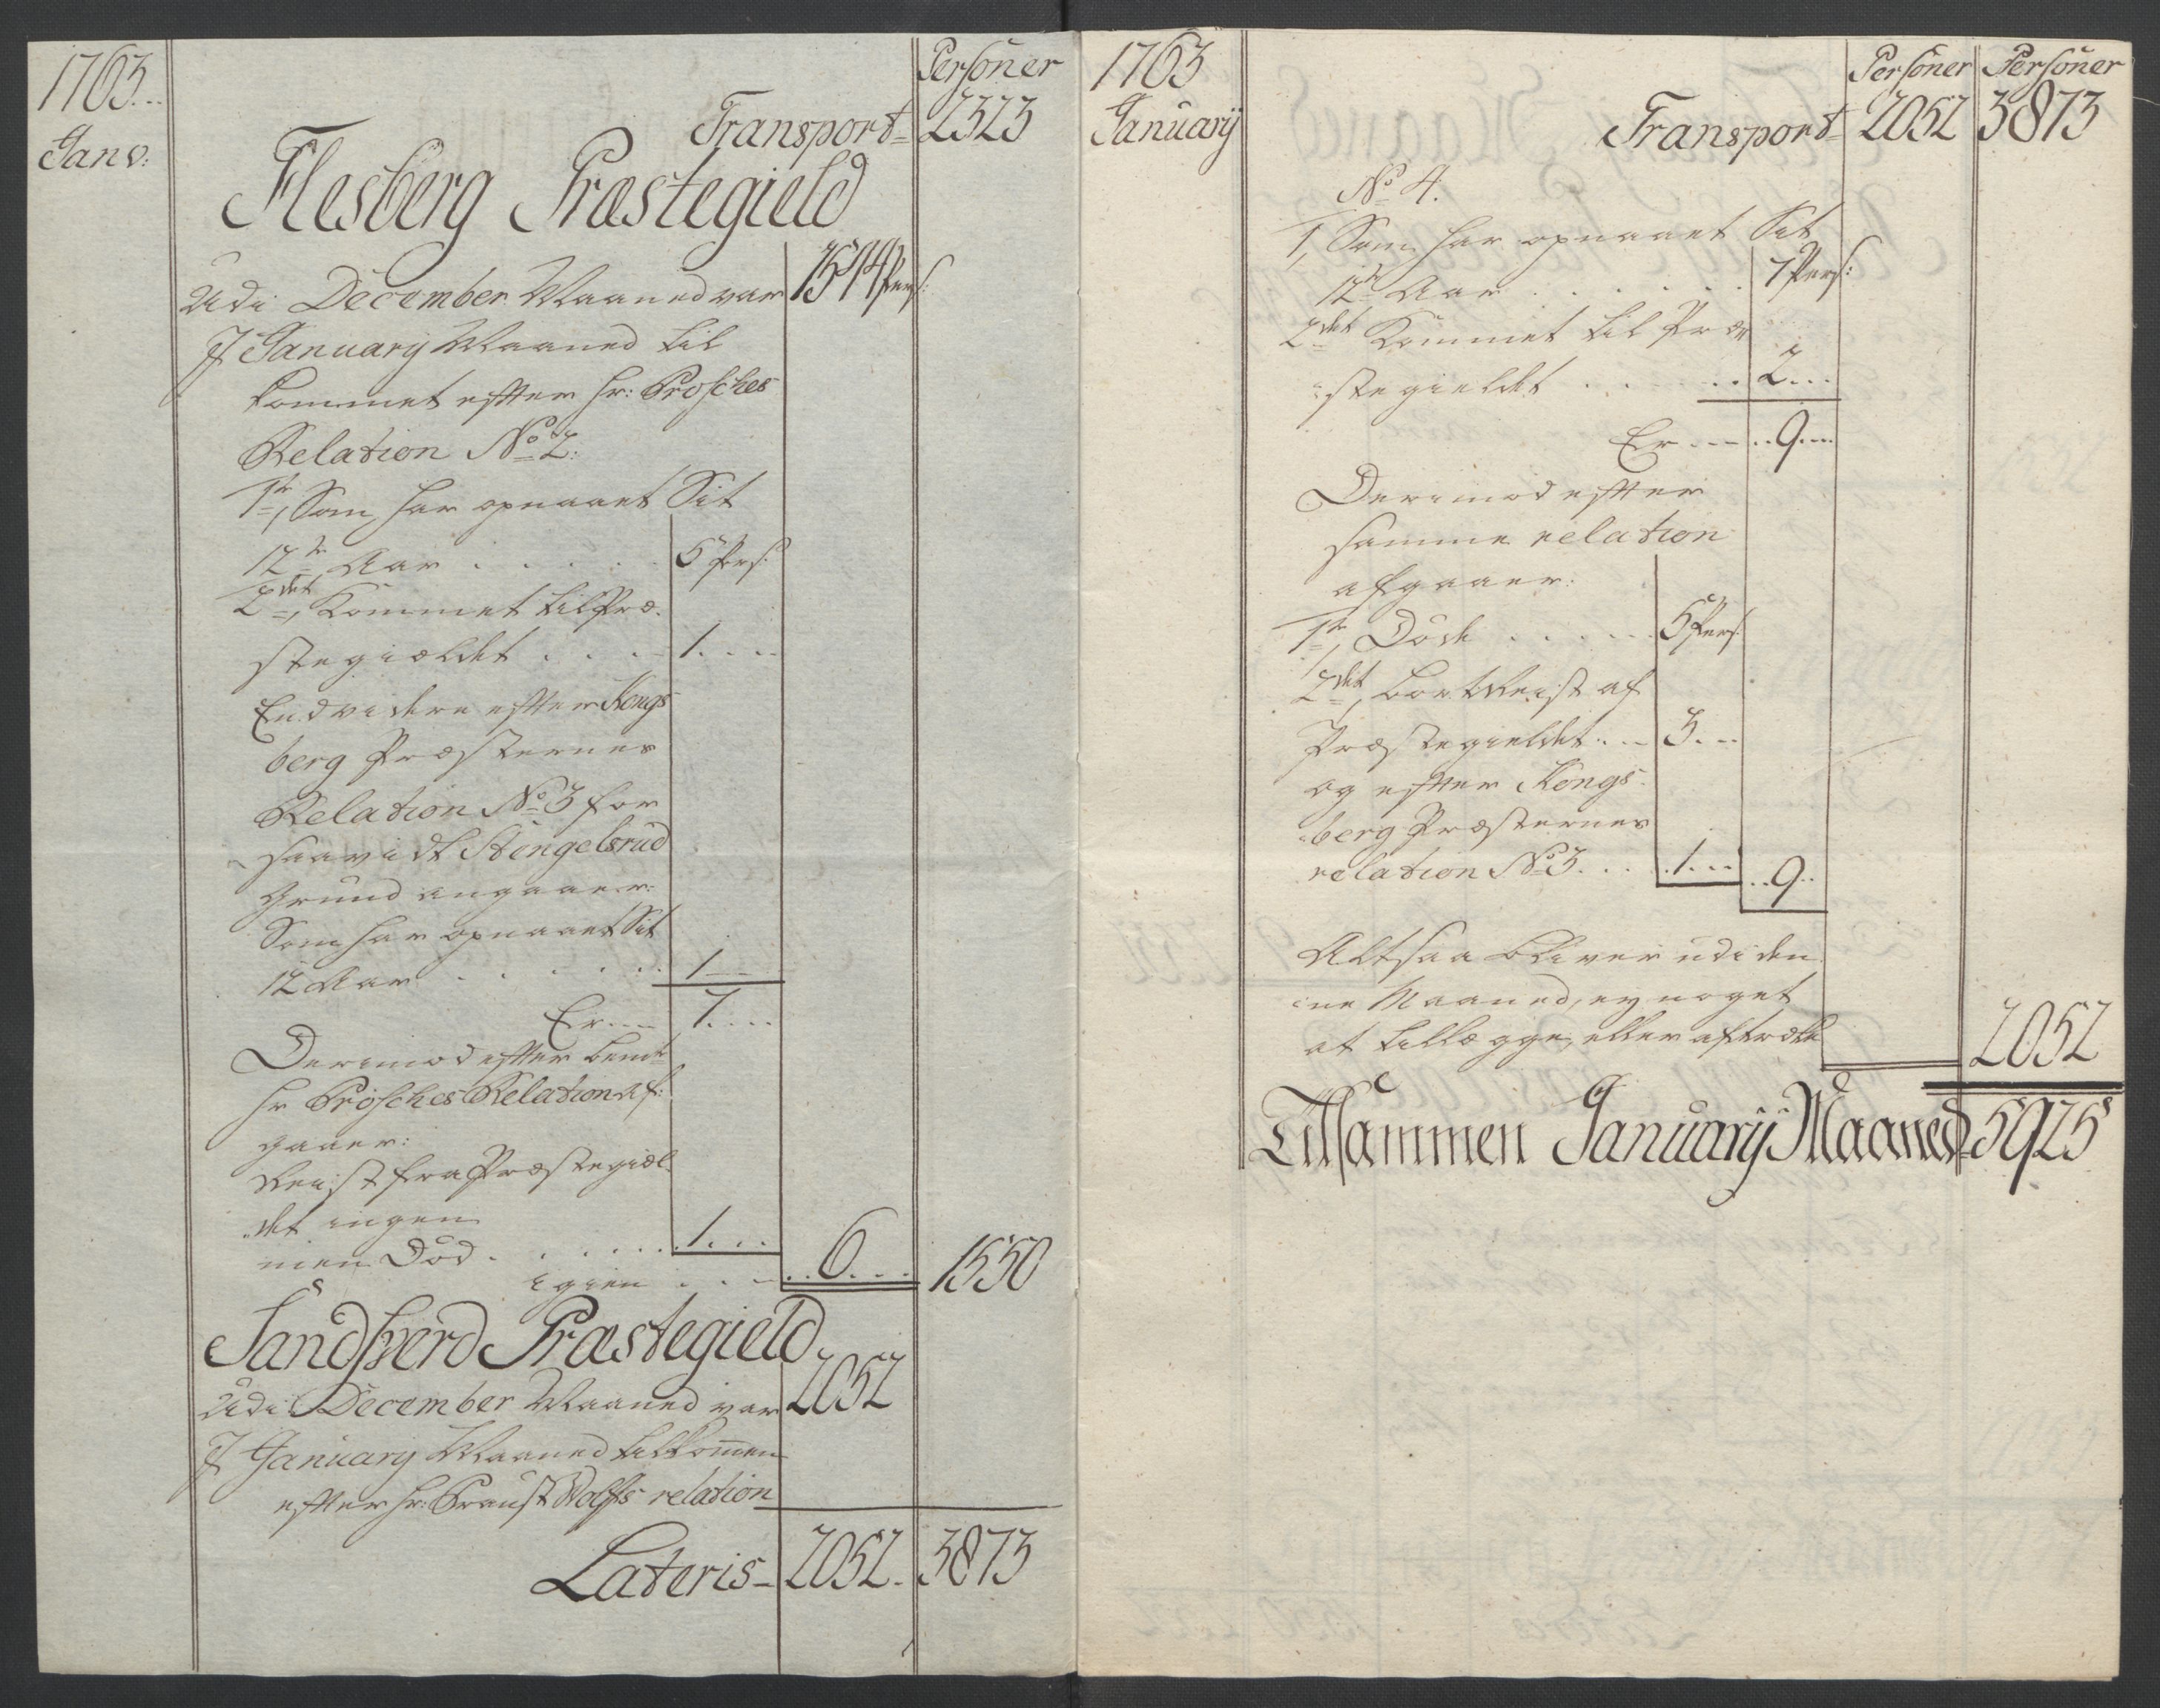 1763
Janv:
Personer
Transport 2323
Flesberg Præstegield
Udi December Maaned var 1544 Pers:
I January Maaned til
kommet efter Hr: Prosches
Relation No 2:
1te, Som har opnaaet Sit
12te Aar . . . . . 5 Pers:
2det, Kommet til Præ-
stegiældet . . . 1. . .
Endvidere efter Kongs
berg Præsternes
Relation No 3 for
saavidt Stengelsrud
Grund angaaer:
Som har opnaaet Sit
12 Aar . . . . . . 1 —
Er — 7. . . .
Derimod efter bemte
Hr Prosches Relation af:
gaaer:
Reist fra Præstegiæl
det ingen
men Død . . . . . . 1. . .
igien . . . 6. . . 1550
Sandsverd Præstegield
Udi December Maaned var 2052
I January Maaned tilkommen
efter Hr: Praust Wolffs relation
Lateris 2052. 3873
1763
January
Personer Personer
Transport 2052 3873
No 4.
1, Som har opnaaet Sit
12te Aar . . . . . . 7 Pers:
2det Kommet til Præ
stegieldet . . . . . 2. . .
Er — . . 9. . .
Derimod efter
samme relation
afgaaer:
1te, Døde . . . . . 5 Pers:
2det, bortReist af
Præstegieldet . . — 3. . .
og efter Kongs-
berg Præsternes
relation No 3. . . . 1. . . . . 9. .
Altsaa bliver udi den
ne Maaned, ey noget
at tillægge, eller aftrække 2052
Tilsammen January Maaned 5925